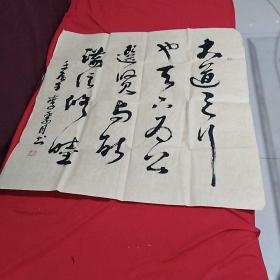 大道之行
也天下为公
选贤与能
讲信修睦